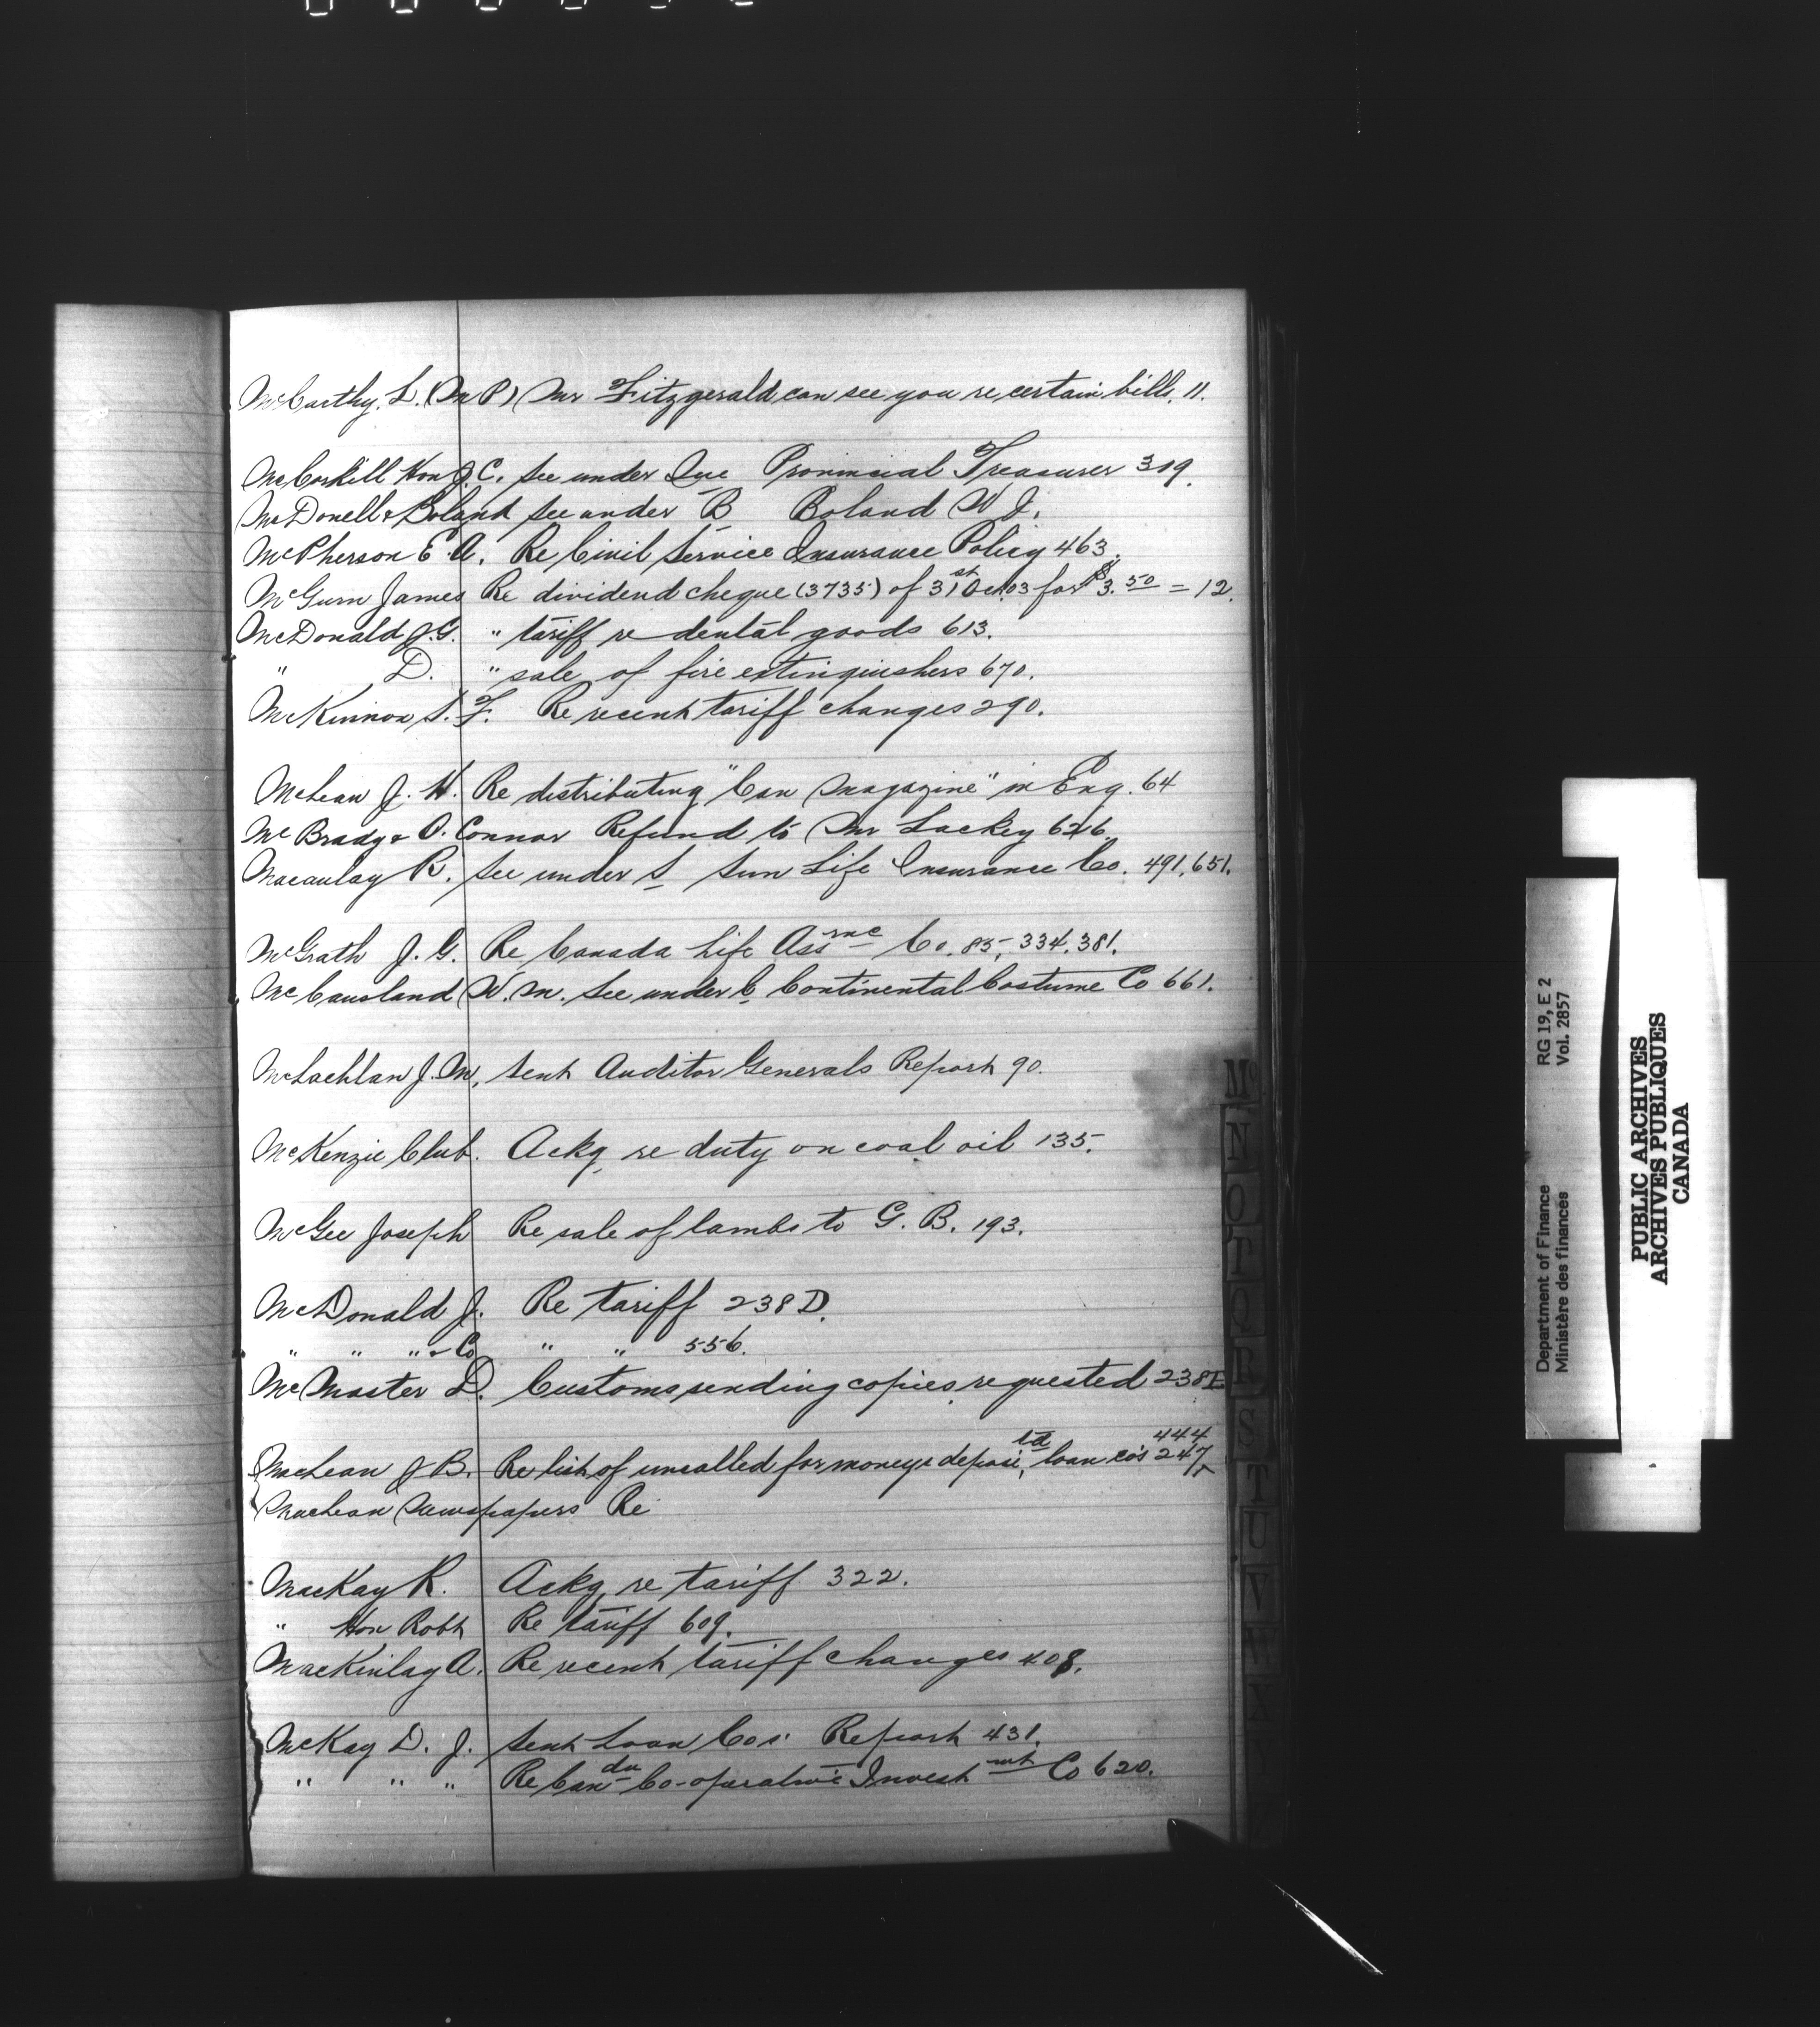 McCarthy, L. (M P) Mr Fitzgerald can see you re certain bills. 11.
McCorkill Hon J. C. See under Que Provincial Treasurer 319.
McDonell & Boland See under B Boland W J.
McPherson E. A. Re Civil Service Insurance Policy 463.
McGurn James Re dividend cheque (3735) of 31st Dec 03 for $3.50 = 12.
McDonald J.G. " tariff re dental goods 613.
" D. " sale of fire extinguishers 670.
McKinnon S. F. Re recent tariff changes 290.
McLean J. H. Re distributing "Can Magazine" in Eng. 64
McBrady & O.Connor Refund to Mr Lackey 626.
Macaulay R. See under S Sun Life Insurance Co. 491, 651.
McGrath J. G. Re Canada Life Assnce Co. 85, 334, 381.
McCausland W. M. See under C Continental Costume Co 661.
McLachlan J. M. Sent Auditor Generals Report 90.
McKenzie Club. Ackg re duty on coal oil 135.
McGee Joseph Re sale of lambs to G. B. 193.
McDonald J. Re tariff 238 D.
" " " & Co " " 556.
McMaster D. Customs sending copies requested 238E
444
MacLean J B. Re list of uncalled for moneys deposited, loan co's 247
MacLean Newspapers Re
MacKay R. Ackg re tariff 322.
" Hon Robt Re tariff 609.
MacKinlay A. Re recent tariff changes 408.
McKay D. J. Sent Loan Cos' Report 431.
" " " Re Candn Co-operative Investmnt Co 620.
M
N
O
P
Q
R
S
T
U
V
W
RG 19, E 2
Vol. 2857
Department of Finance
Ministère des finances
PUBLIC ARCHIVES
ARCHIVES PUBLIQUES
CANADA